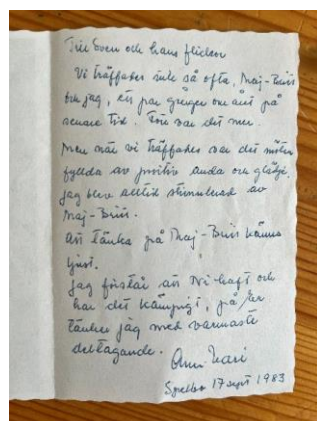 Till Sven och hans flickor
Vi träffades inte så ofta, Maj-Britt
och jag, ett par gånger om året på
senare tid. Förr var det mer.
Men när vi träffades var det möten
fyllda av positiv anda och glädje.
Jag blev alltid stimulerad av
Maj-Britt.
Att tänka på Maj-Britt känns
ljust.
Jag förstår att Ni haft och
har det kämpigt, på Er
tänker jag med varmaste
deltagande.
Ann Mari
17 sept 1983